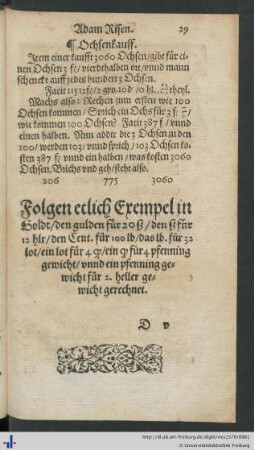 Adam Risen. 29
¶ Ochsenkauff.
Item einer kaufft 3060 Ochsen/gibt für ei-
nen Ochsen 3 fl/ vierdthalben ort/vnnd mann
schenckt auff jedes hundert 3 Ochsen.
Facit 11512 fl/2 gro. 10 d/0 hl. theyl.
Machs also: Rechen zum ersten wie 100
Ochsen kommen/ Sprich ein Ochs für 3 fl
wie kommen 100 Ochsen? Facit 387 f/ vnnd
einen halben. Nun addir die 3 Ochsen zu den
100/werden 103/ vnnd sprich/103 Ochsen ko-
sten 387 fl vnnd ein halben/was kosten 3060
Ochsen. Brichs vnd geh/steht also.
206 775 3060
Folgen etlich Exempel in
Goldt/den gulden für 20 ß/den ß für
12 hlr/den Cent. für 100 lb/das lb. für 32
lot/ein lot für 4 q/ein q für 4 pfenning
gewicht/vnnd ein pfenning ge-
wicht für 2. heller ge-
wicht gerechnet.
D v
http://dl.ub.uni-freiburg.de/diglit/ries1578/0061
© Universitätsbibliothek Freiburg